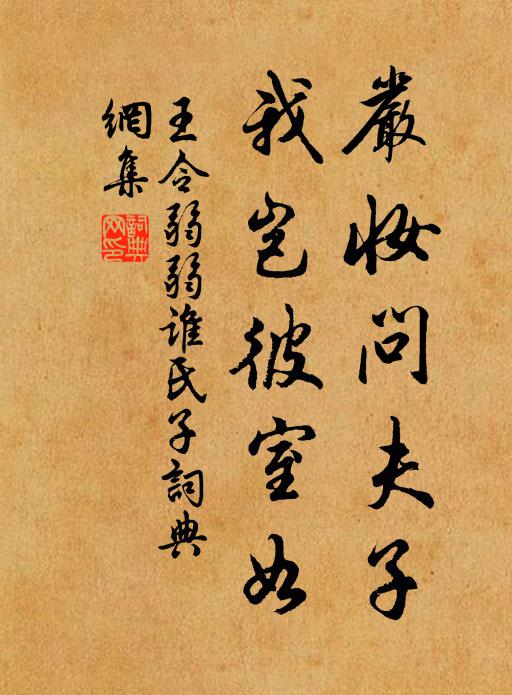 嚴妝問夫子
我豈彼室如
王令弱弱誰氏子詞典
網集
詞典
网印